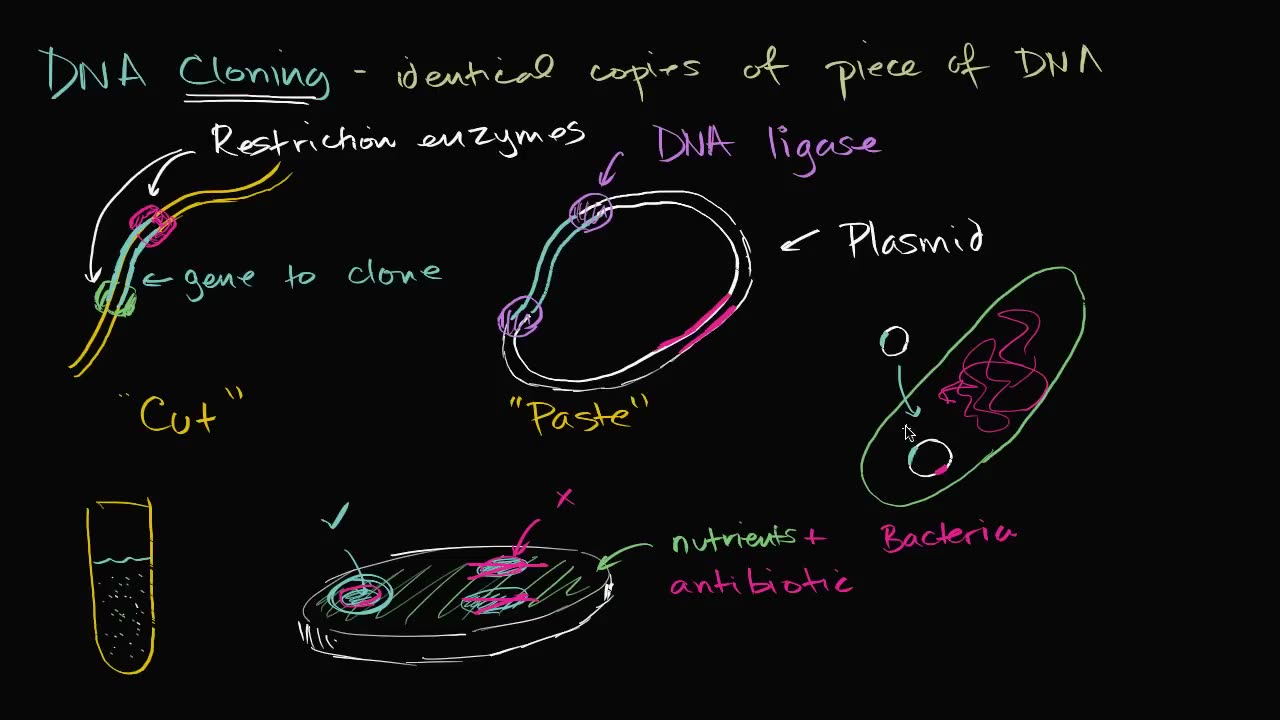 DNA Cloning - identical copies of piece of DNA
Restriction enzymes
DNA ligase
Plasmid
gene to clone
"Cut"
"Paste"
nutrients +
antibiotic
Bacteria